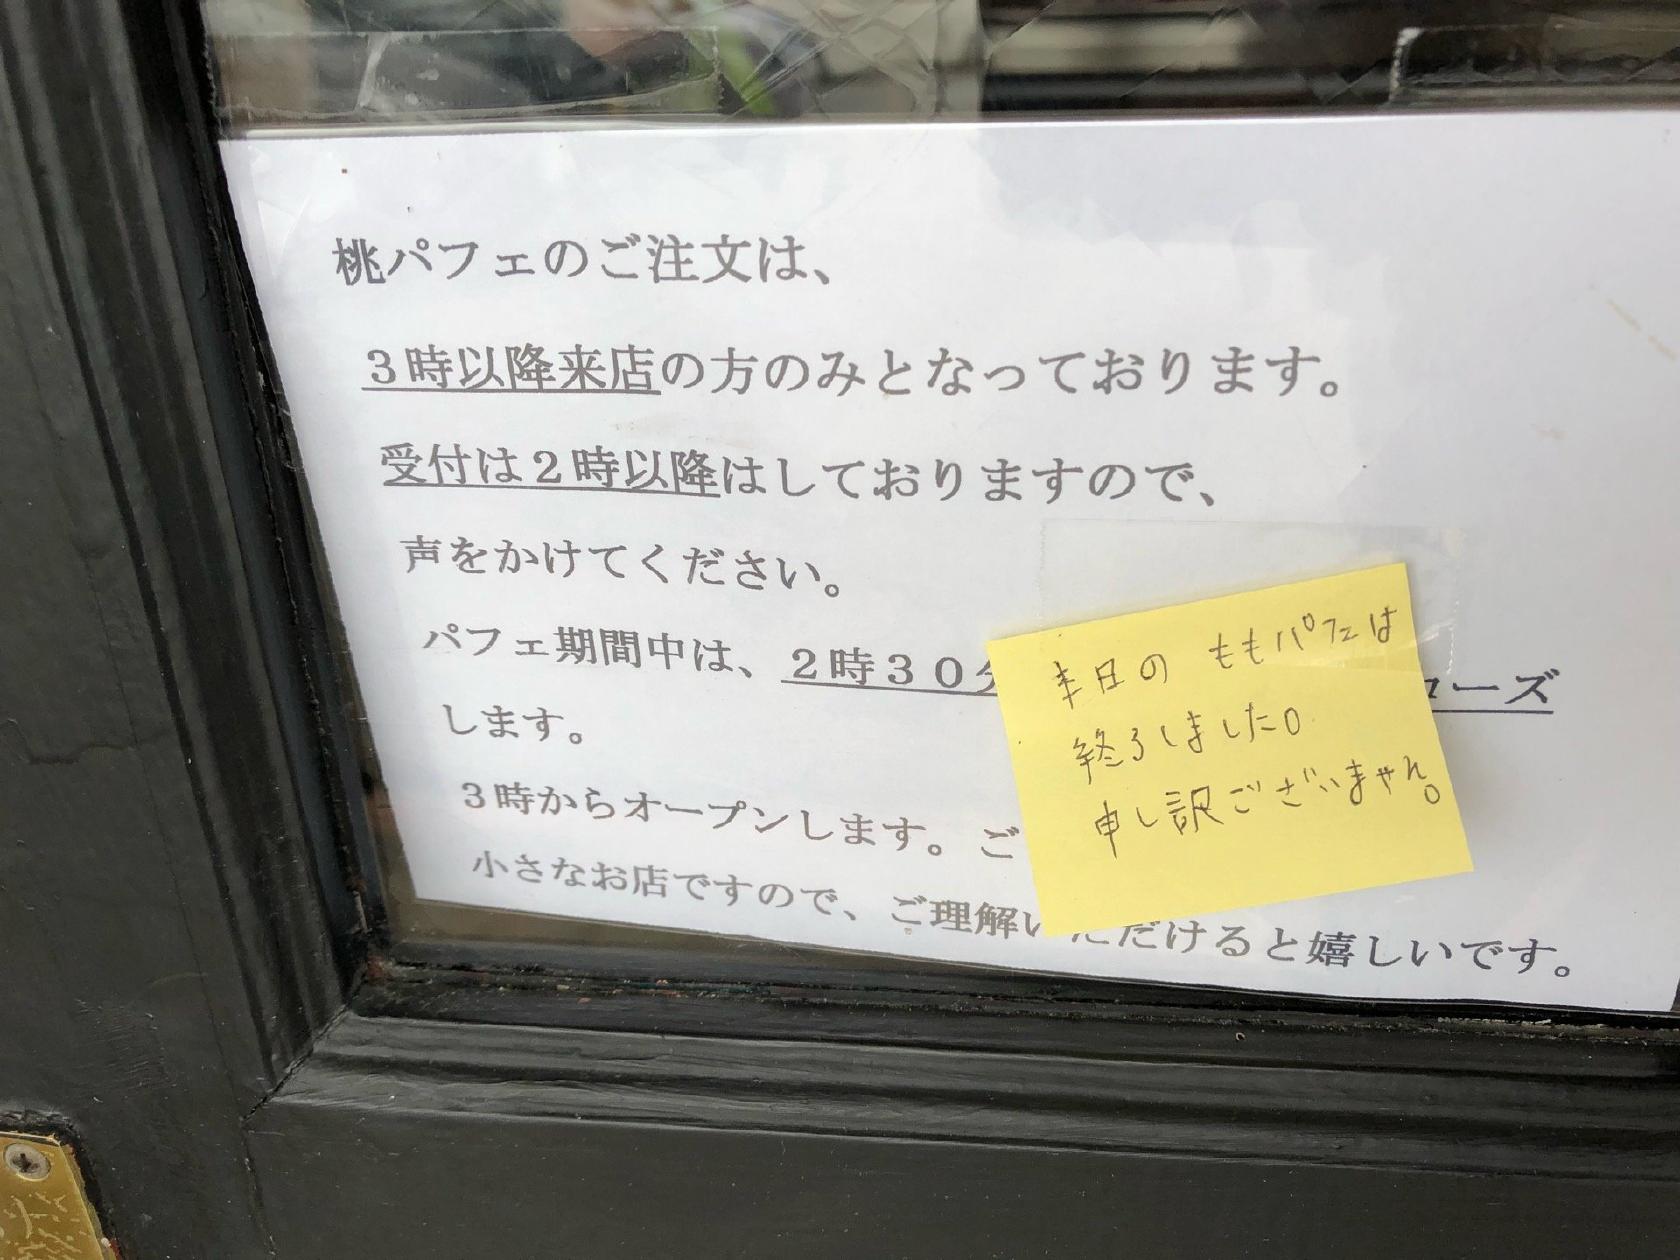 桃パフェのご注文は、
３時以降来店の方のみとなっております。
受付は２時以降はしておりますので、
声をかけてください。
パフェ期間中は、２時３０ ローズ
します。
３時からオープンします。ご
小さなお店ですので、ご理解いただけると嬉しいです。
本日の ももパフェは
終了しました。
申し訳ございません。